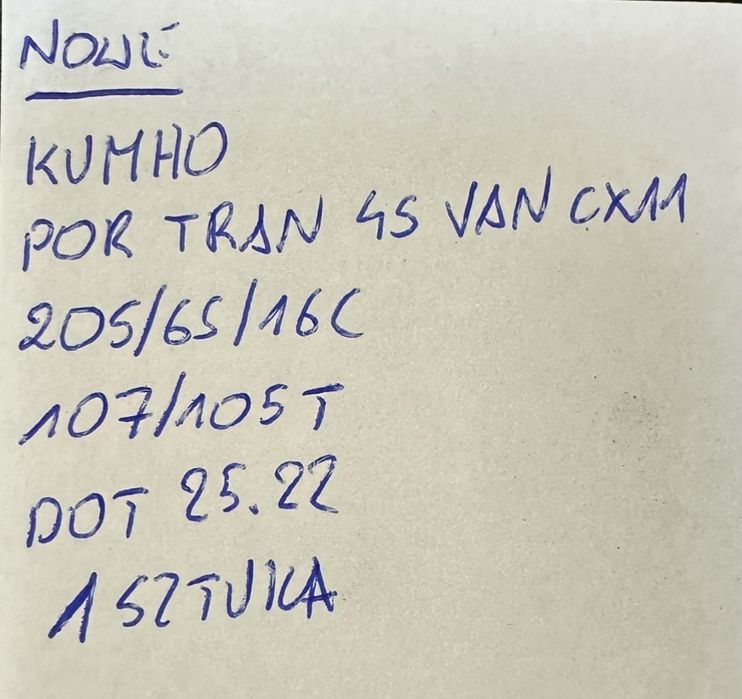 NOWE
KUMHO
POR TRAN 4S VAN CX11
205/65/16C
107/105T
DOT 25.22
1 SZTUKA